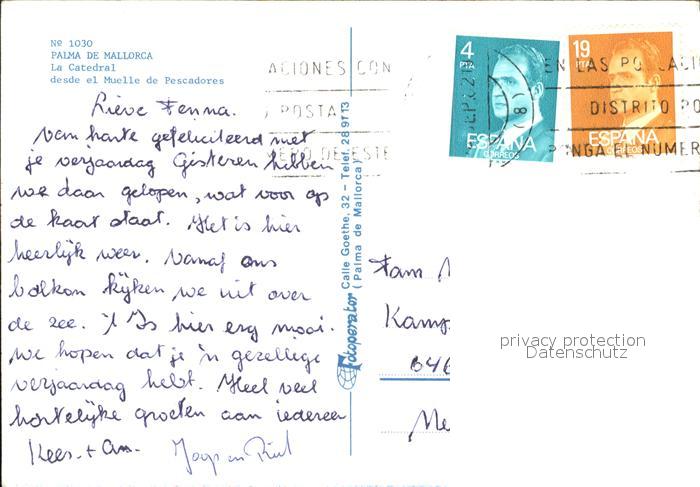 Nº 1030
PALMA DE MALLORCA
La Catedral
desde el Muelle de Pescadores
Lieve Fenna.
Van harte gefeliciteerd met
je verjaardag Gisteren hebben
we daar gelopen, wat voor op
de kaart staat. Het is hier
heerlijk weer. Vanaf ons
balkon kijken we uit over
de zee. 't Is hier erg mooi.
We hopen dat je 'n gezellige
verjaardag hebt. Heel veel
hartelijke groeten aan iedereen
Kees + An. Jaap en
Fotoperator Calle Goethe, 32 – Telef. 28 91 13
( Palma de Mallorca )
ACIONES CON
POSTA
MERO DE ESTE
4 PTA
ESPAÑA
CORREOS
19 PTA
ESPAÑA
CORREOS
EN LAS POBLACI
DISTRITO PO
PONGA EL NUMER
Fam
Kamp
646
Me
privacy protection
Datenschutz